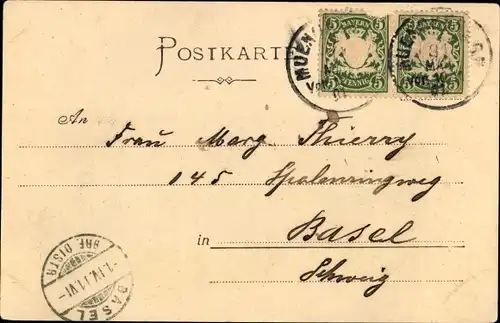 POSTKARTE
BAYERN
5 5
PFENNIG
BAYERN
5 5
PFENNIG
An Frau Marg. Thierry
145 Spalenringweg
in Basel
Schweiz
BASEL
BRF. DISTR.